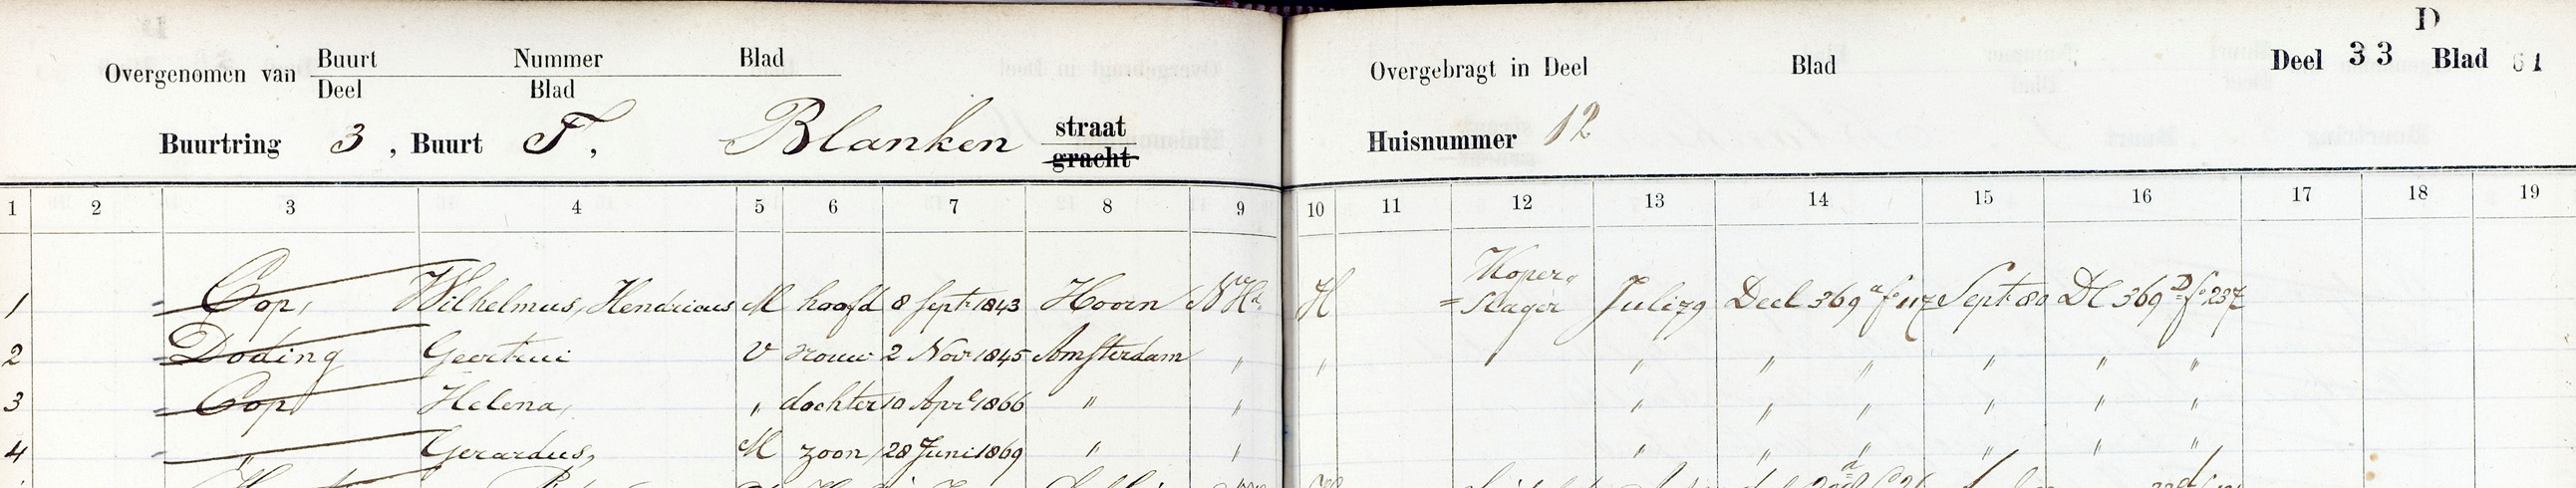 D
Overgenomen van Buurt Nummer Blad
Deel Blad
Overgebragt in Deel Blad Deel 33 Blad 61
Buurtring 3, Buurt F, Blanken straat
gracht
Huisnummer 12
1 2 3 4 5 6 7 8 9 10 11 12 13 14 15 16 17 18 19
1 Cop, Wilhelmus, Hendricus M hoofd 8 Sept 1843 Hoorn N Hd. H Koper, Slager Juli 79 Deel 369 a fo 117 Sept 80 Dl 369 D fo 237
2 Doding Geertrui V vrouw 2 Nov 1845 Amsterdam " " " " " " " "
3 Cop Helena, " dochter 10 Apri 1866 " " " " " " " "
4 " Gerardus, M zoon 28 Juni 1869 " " " " " " " "